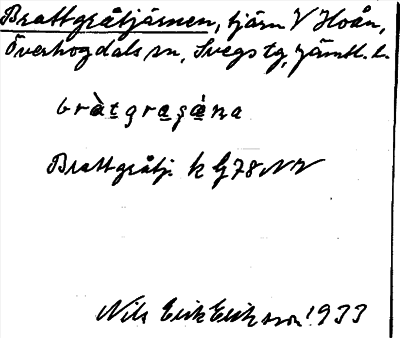 Brattgråtjärnen, tjärn V Hoån,
Överhogdals sn, Svegs tg, Jämtl. l.
bràtgraʂǽna
Brattgråtj. k G 78 NV
Nils Erik Eriksson 1933